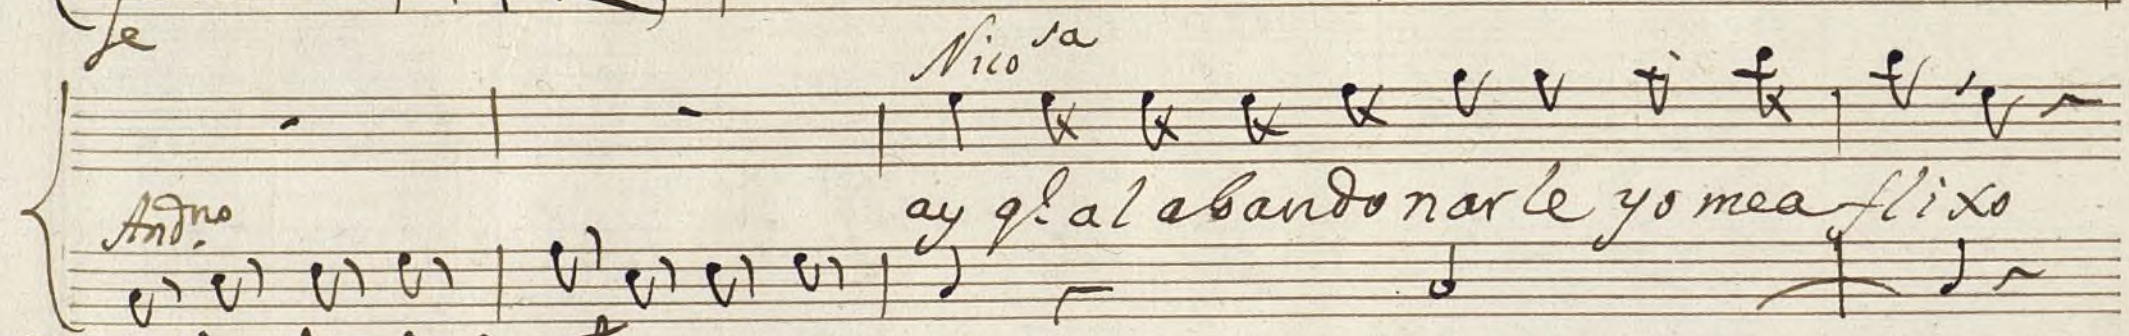 se
Nico sa
ay q.e al abandonarle yo mea flixo
And.no